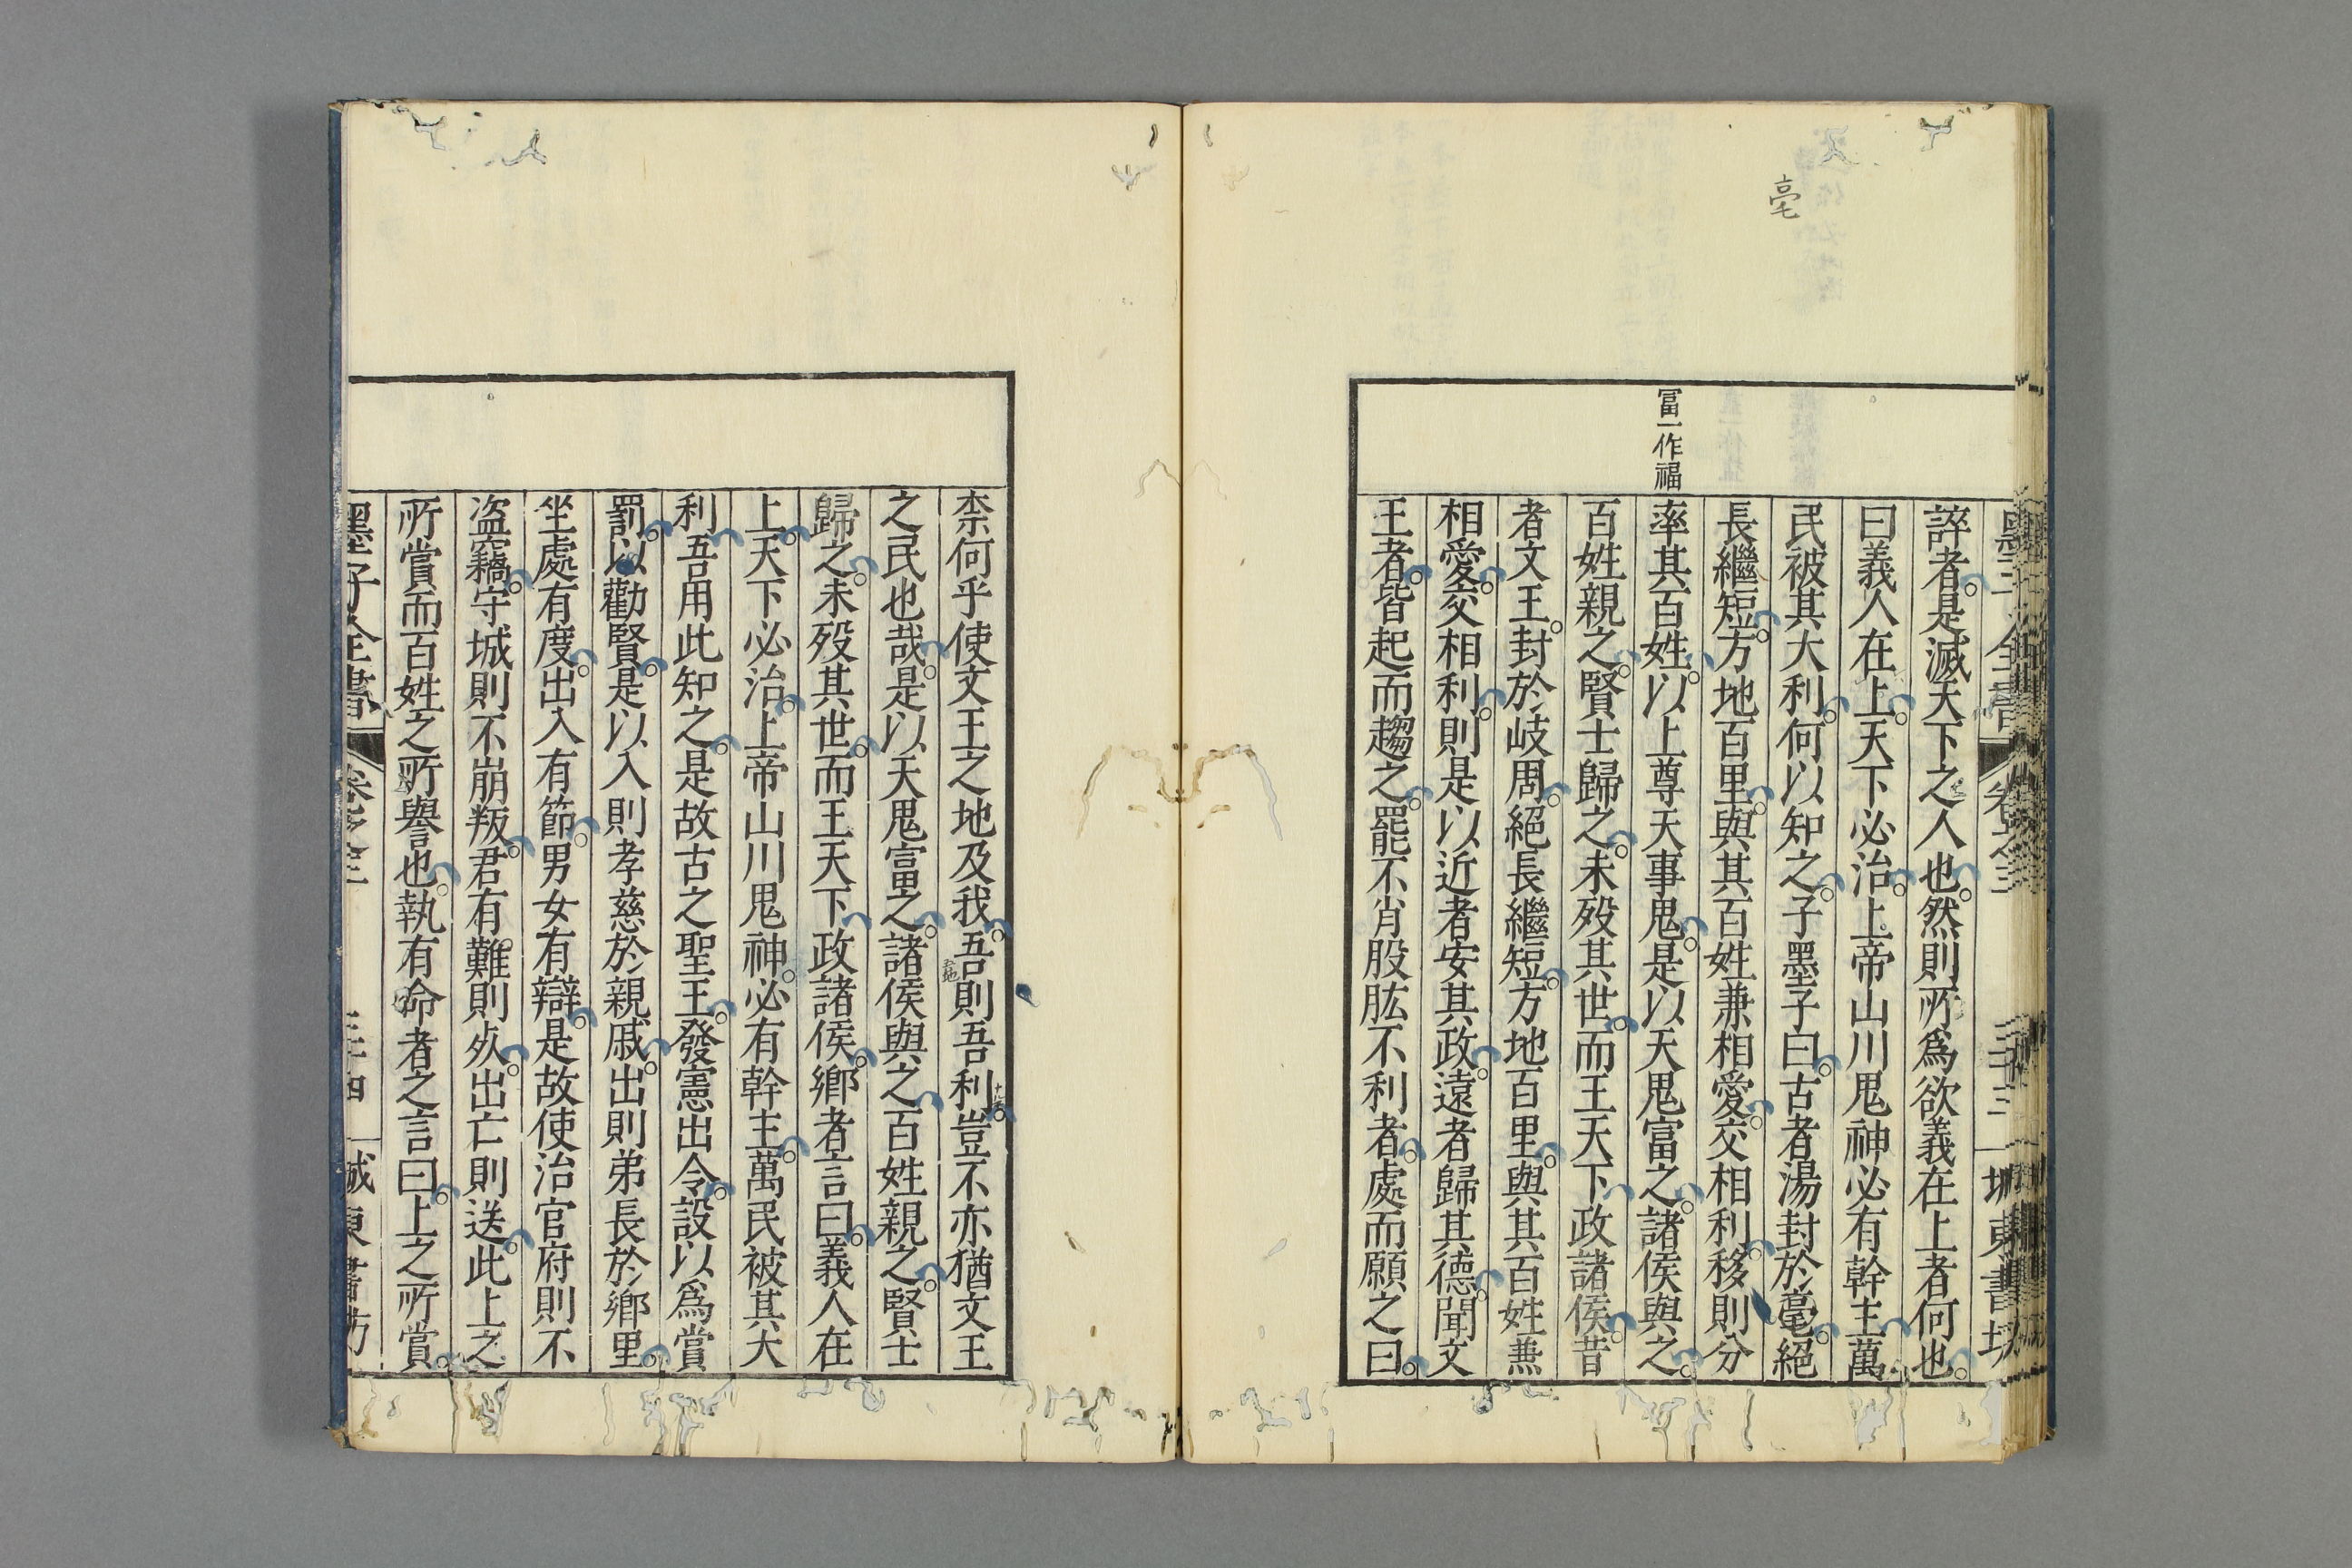 亳
冨一作福
墨子全書 卷之三 三十三 城東書坊
誶者是滅天下之人也然則所爲欲義在上者何也
曰義人在上天下必治上帝山川鬼神必有幹主萬
民被其大利何以知之子墨子曰古者湯封於亳絕
長繼短方地百里與其百姓兼相愛交相利移則分
率其百姓以上尊天事鬼是以天鬼富之諸侯與之
百姓親之賢士歸之未歿其世而王天下政諸侯昔
者文王封於岐周絕長繼短方地百里與其百姓兼
相愛交相利則是以近者安其政遠者歸其德聞文
王者皆起而趨之罷不肖股肱不利者處而願之曰
柰何乎使文王之地及我吾則吾利豈不亦猶文王
之民也哉是以天鬼富之諸侯與之百姓親之賢士
歸之未歿其世而王天下政諸侯鄉者言曰義人在
上天下必治上帝山川鬼神必有幹主萬民被其大
利吾用此知之是故古之聖王發憲出令設以爲賞
罰以勸賢是以入則孝慈於親戚出則弟長於鄉里
坐處有度出入有節男女有辯是故使治官府則不
盜竊守城則不崩叛君有難則死出亡則送此上之
所賞而百姓之所譽也執有命者之言曰上之所賞
墨子全書 卷之三 三十四 城東書坊